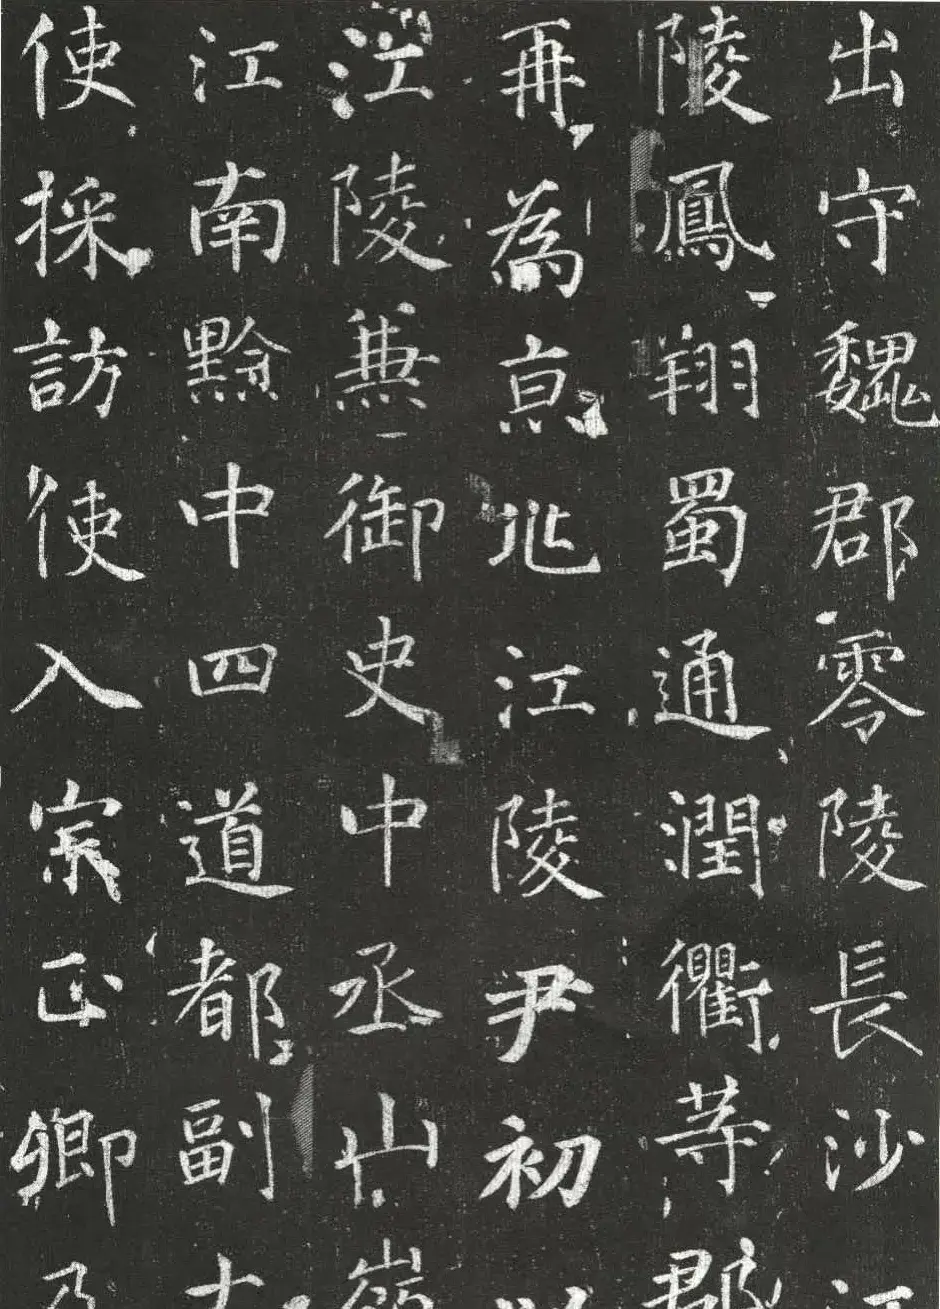 出守魏郡零陵長沙
陵鳳翔蜀通潤衢等郡
再為京兆江陵尹初
江陵兼御史中丞山嶺
江南黔中四道都副大
使採訪使入宗正卿乃